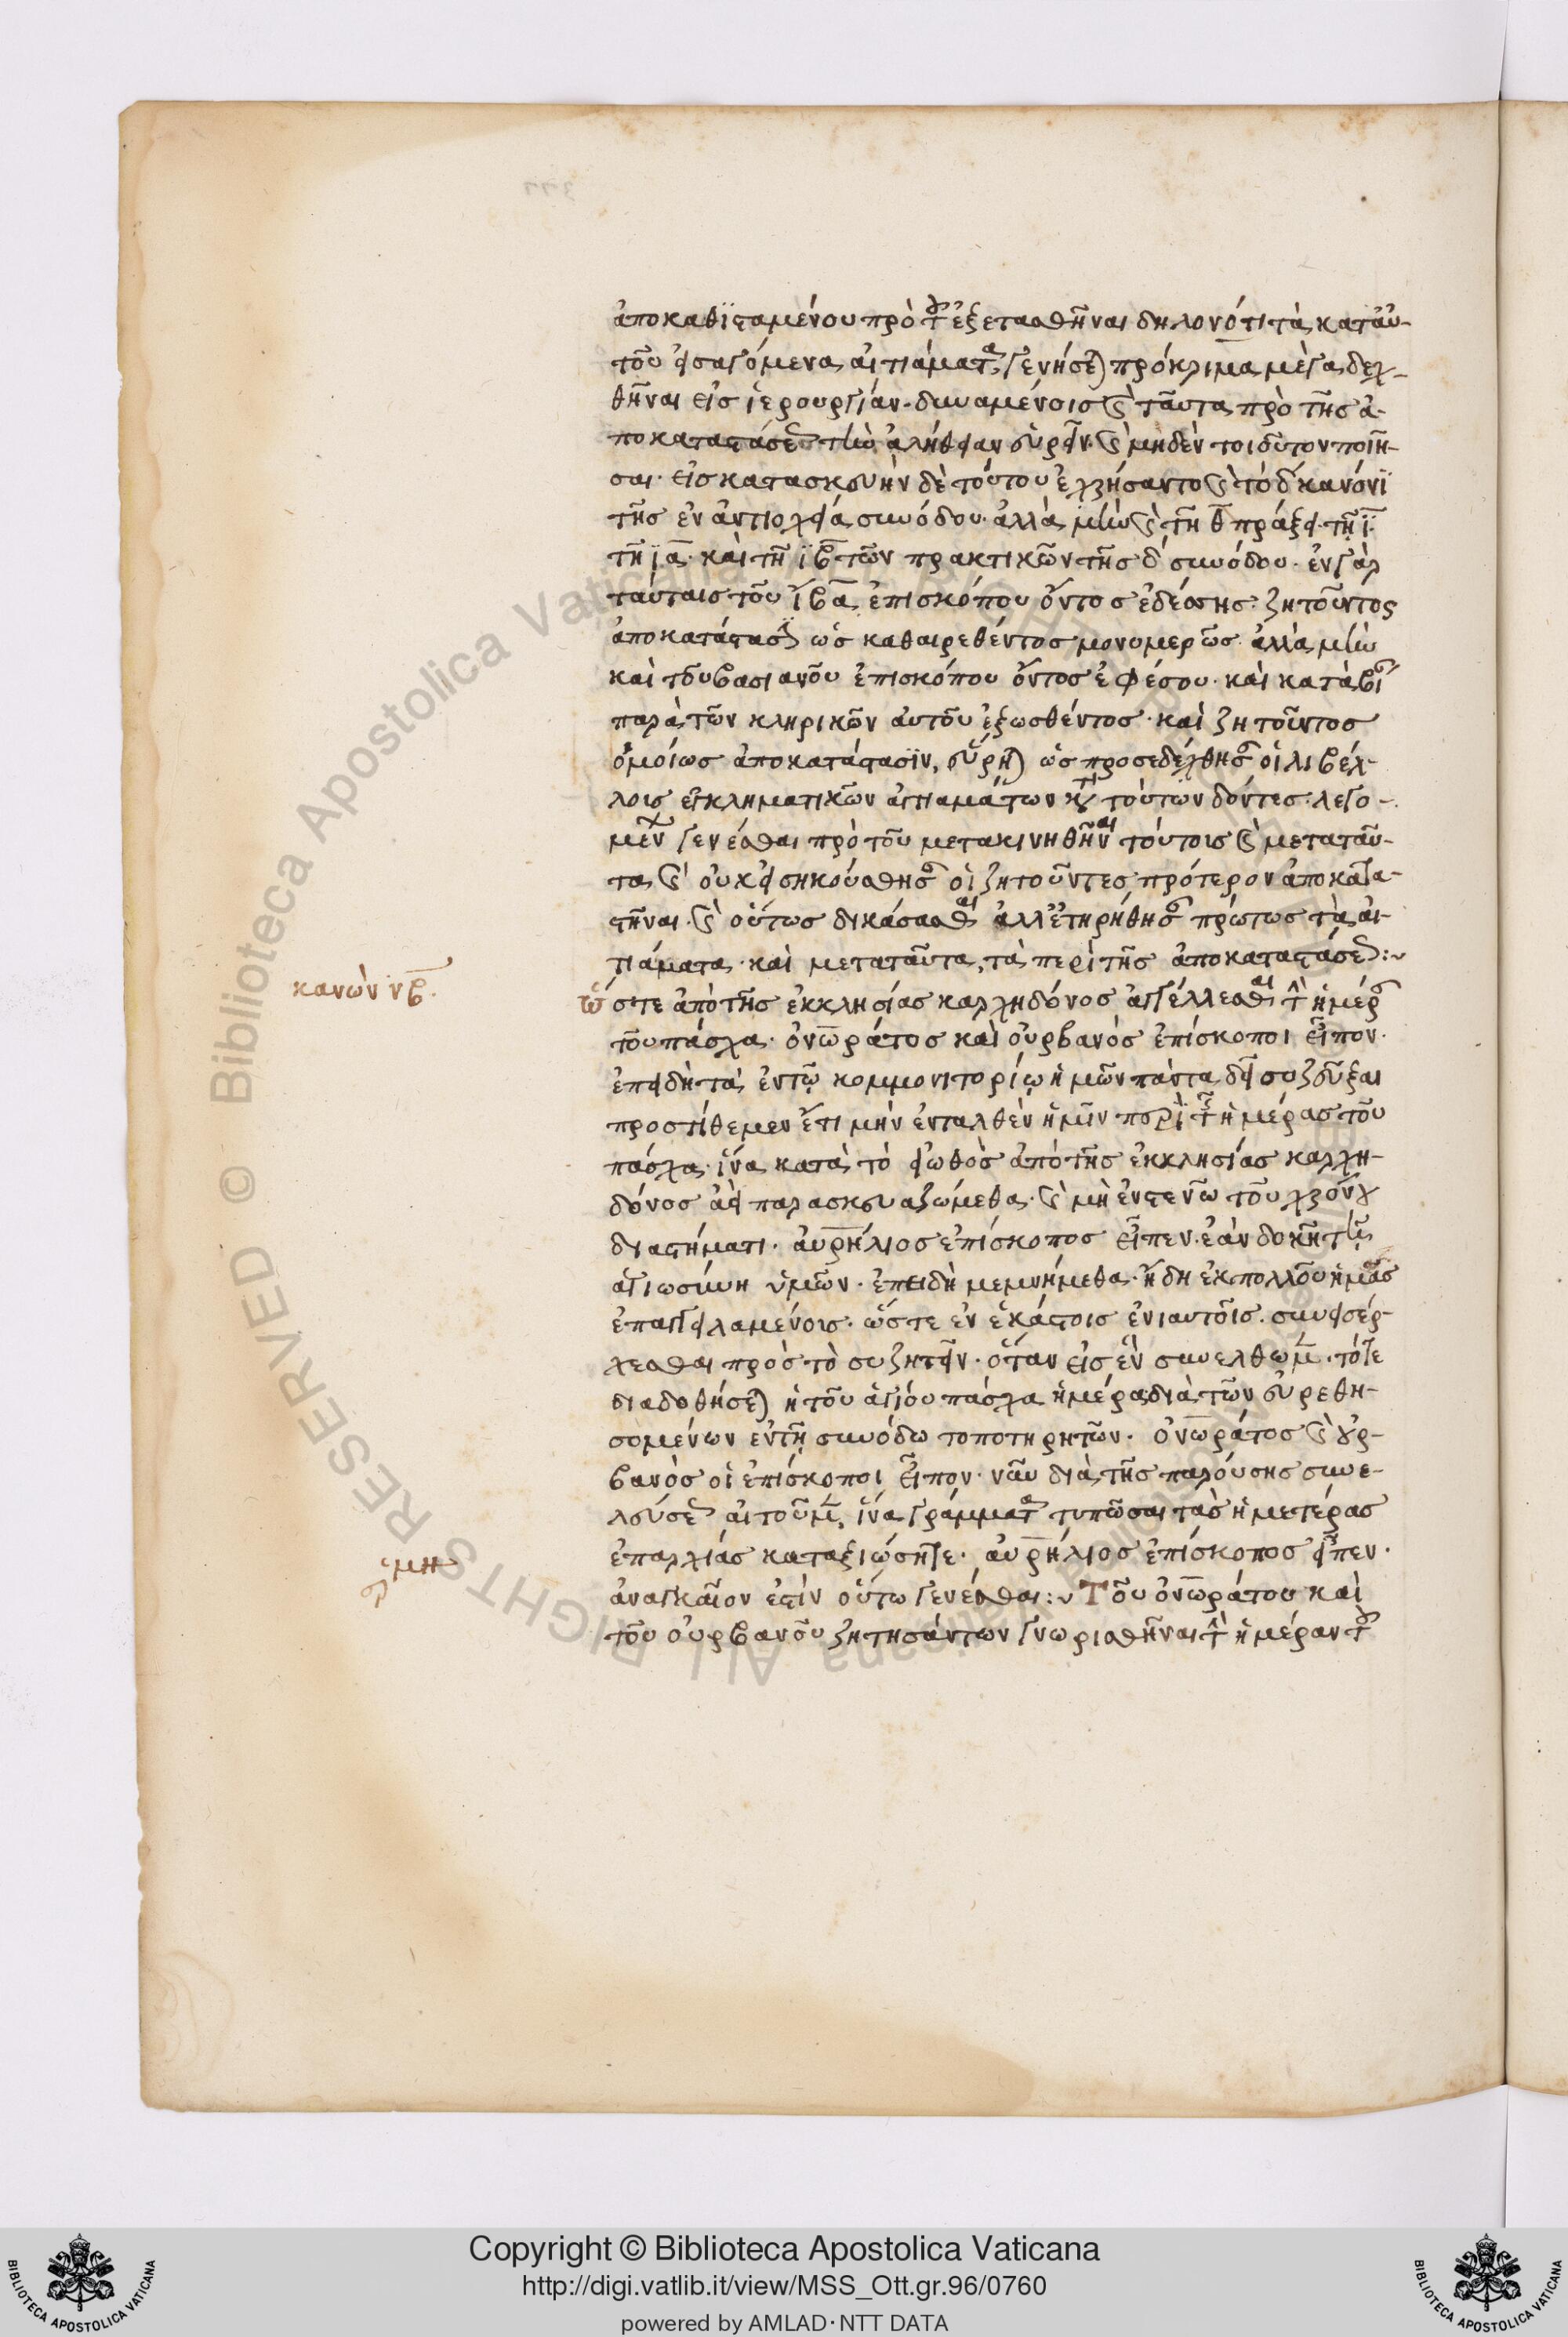 ἀποκαθϊσταμένου πρὸ τοῦ ἐξετασθῆναι δηλονότι τὰ κατ' αὐ-
τοῦ εἰσαγόμενα αἰτιάματα, γενήσεται πρόκλιμα μέγα δεχ-
θῆναι εἰς ἱερουργίαν. δυναμένοις καὶ ταῦτα πρὸ τῆς ἀ-
ποκαταστάσεως τὴν ἀλήθειαν εὑρεῖν. καὶ μηδὲν τοιοῦτον ποιῆ-
σαι. εἰς κατασκευὴν δὲ τούτου ἐχρήσαντο καὶ τὸ δ κανόνϊ
τῆς ἐν ἀντιοχεία συνόδου. ἀλλὰ μὴν καὶ τῆ θ πράξει. τῆ ϊ.
τῆ ϊα. καὶ τῆ ϊβ τῶν πρακτικῶν τῆς δ συνόδου. ἐν γὰρ
ταύταις τοῦ ἴβα ἐπισκόπου ὄντος ἐδέσης. ζητοῦντος
ἀποκατάστασιν ὡς καθαιρεθέντος μονομερῶς. ἀλλὰ μὴν
καὶ τοῦ βασιανοῦ ἐπισκόπου ὄντος ἐφέσου. καὶ κατὰ βίαν
παρὰ τῶν κληρικῶν αὐτοῦ ἐξωσθέντος. καὶ ζητοῦντος
ὁμοίως ἀποκατάστασϊν, εὕρηται ὡς προσεδέχθησαν οἱ λιβέλ-
λοις ἐγκληματικῶν αἰτιαμάτων κατὰ τούτων δόντες. λεγο-
μένων γενέσθαι πρὸ τοῦ μετακινηθῆναι τούτοις καὶ μετα ταῦ-
τα καὶ οὐκ εἰσηκούσθησαν οἱ ζητοῦντες πρότερον ἀποκατα-
στῆναι. καὶ οὕτως δικάσασθαι ἀλλ' ἐτηρήθησαν πρώτως τὰ αἰ-
τιάματα. καὶ μετα ταῦτα, τὰ περὶ τῆς ἀποκαταστάσεως:~
κανὼν νβ.
ὥστε ἀπὸ τῆς ἐκκλησίας καρχηδόνος ἀγγέλλεσθαι τὴν ἡμέραν
τοῦ πάσχα. ὀνωράτος καὶ οὐρβανὸς ἐπίσκοποι εἶπον.
ἐπειδὴ τὰ ἐν τῷ κομμονιτορίῳ ἡμῶν πάντα δεῖ συζεῦξαι
προστίθεμεν ἔτι μὴν ἐνταλθὲν ἡμῖν περὶ τῆς ἡμέρας τοῦ
πάσχα. ἵνα κατὰ τὸ εἰωθὸς ἀπὸ τῆς ἐκκλησίας καρχη-
δόνος ἀεὶ παρασκευαζώμεθα. καὶ μὴ ἐν στενῶ τοῦ χρόνου
διαστήματι. αὐρήλιος ἐπίσκοπος εἶπεν. ἐὰν δοκῆ τῆ
ἁγιωσύνη ὑμῶν. ἐπειδὴ μεμνήμεθα. ἤδη ἐκ πολλοῦ ἡμᾶς
ἐπαγγειλαμένοις. ὥστε ἐν ἑκάστοις ἐνιαυτοῖς. συνεισέρ-
χεσθαι πρὸς τὸ συζητεῖν. ὅταν εἰς ἓν συνελθωμεν. τότε
διαδοθήσεται ἡ τοῦ ἁγίου πάσχα ἡμέρα διὰ τῶν εὑρεθη-
σομένων ἐν τῆ συνόδω τοποτηρητῶν. ὀνωράτος καὶ οὐρ-
βανὸς οἱ ἐπίσκοποι εἶπον. νῦν διὰ τῆς παρούσης συνε-
λεύσεως αἰτοῦμεν, ἵνα γράμματα τυπῶσαι τὰς ἡμετέρας
ἐπαρχίας καταξιώσητε. αὐρήλιος ἐπίσκοπος εἶπεν.
ἑρμη
ἀναγκαῖον ἐστὶν οὕτω γενέσθαι:~ Τοῦ ὀνωράτου καὶ
τοῦ οὐρβανοῦ ζητησάντων γνωρισθῆναι τὴν ἡμέραν τοῦ
Copyright © Biblioteca Apostolica Vaticana
http://digi.vatlib.it/view/MSS_Ott.gr.96/0760
powered by AMLAD·NTT DATA